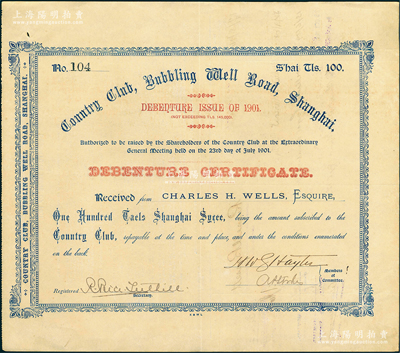 上海陽明拍賣
No. 104
Shai Tls. 100.
Country Club, Bubbling Well Road, Shanghai.
DEBENTURE ISSUE OF 1901.
(NOT EXCEEDING TLS.
Authorized to be raised by the Shareholders of the Country Club at the Extraordinary
General Meeting held on the 23rd day of July 1901.
DEBENTURE CERTIFICATE.
Received from CHARLES H. WELLS, ESQUIRE,
One Hundred Taels Shanghai Sycee, being the amount subscribed to the
Country Club, repayable at the time and place, and under the conditions enumerated
on the back.
Members
of
Committee.
Registered
Secretary.
COUNTRY CLUB BUBBLING WELL ROAD, SHANGHAI.